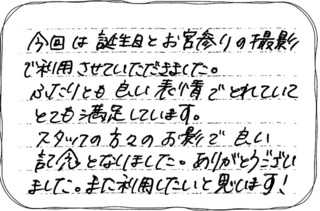 今回は誕生日とお宮参りの撮影
で利用させていただきました。
ふたりとも良い表情でとれていて
とても満足しています。
スタッフの方々のお影で良い
記念となりました。ありがとうござい
ました。また利用したいと思います!